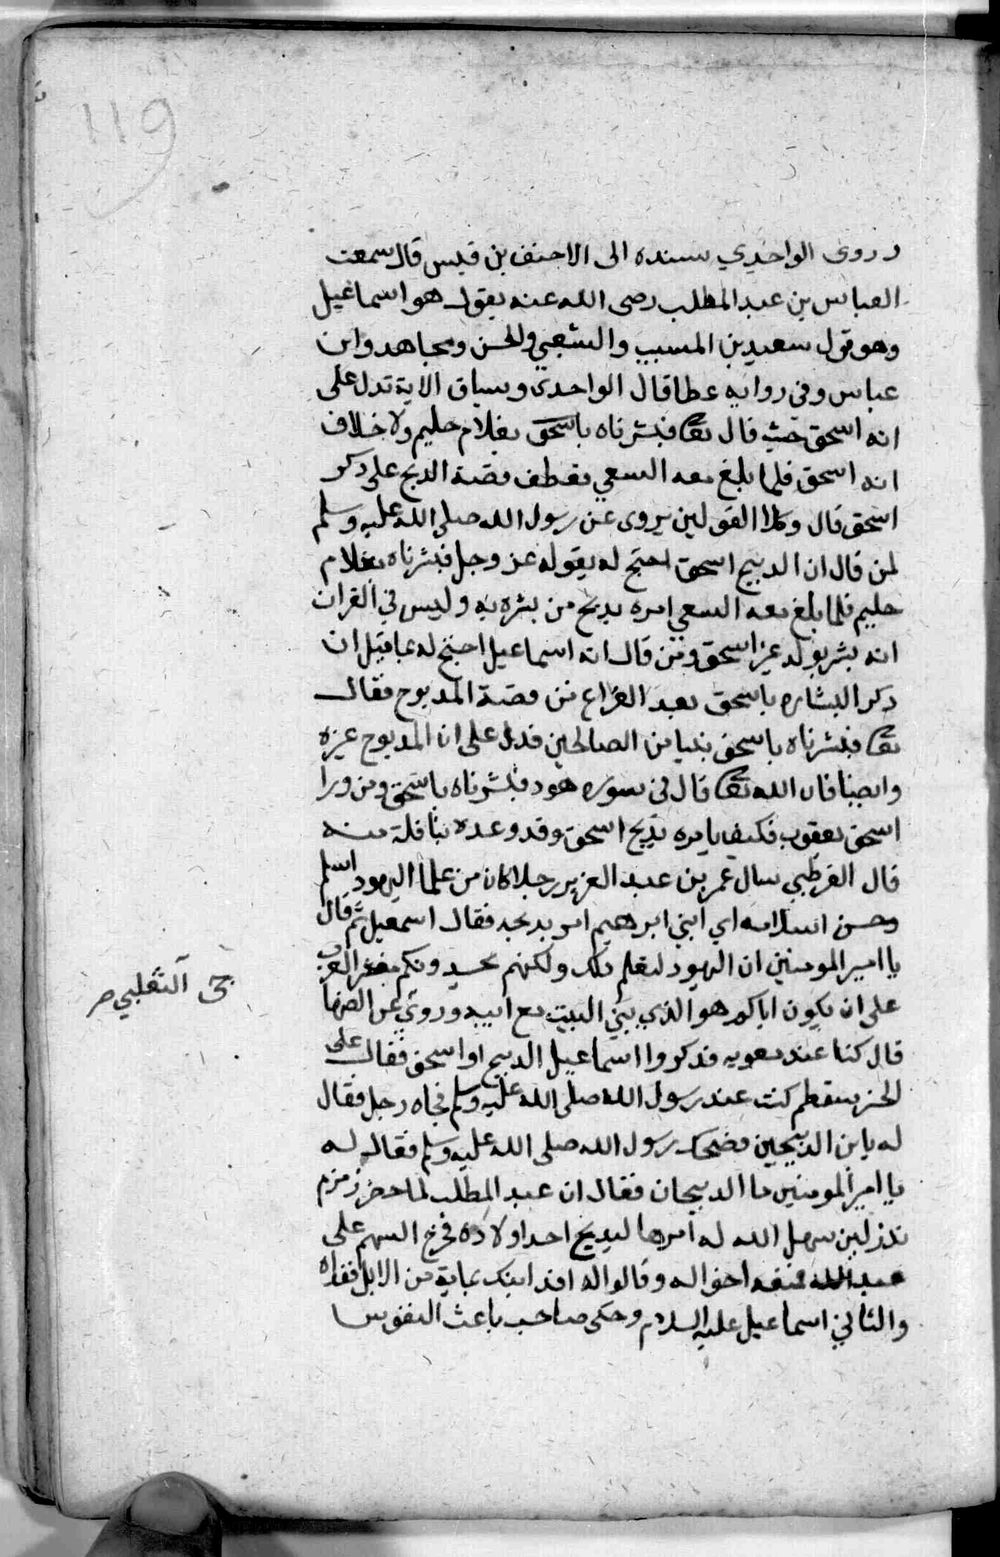 119
وروى الواحدي بسنده الى الاحنف بن قيس قال سمعت
العباس بن عبد المطلب رضى الله عنه يقول هو اسماعيل
وهو قول سعيد بن المسيب والشعبي والحسن ومجاهد وابن
عباس وفى رواية عطا قال الواحدي وسياق الاية تدل على
انه اسحق حيث قال تعا فبشرناه باسحق بغلام حليم ولا خلاف
انه اسحق فلما بلغ معه السعي فعطف قصة الذبح على ذكر
اسحق قال وكلا القولين يروى عن رسول الله صلى الله عليه وسلم
لمن قال ان الذبيح اسحق احتج له بقوله عز وجل فبشرناه بغلام
حليم فلما بلغ معه السعي امره بذبح من بشره به وليس في القران
انه بشر بولد غير اسحق ومن قال انه اسماعيل احتج له بما قيل ان
ذكر البشاره باسحق بعد الفراغ من قصة المذبوح فقال
تعا فبشرناه باسحق نبيا من الصالحين فدل على ان المذبوح غيره
وايضا فان الله تعا قال فى سوره هود فبشرناه باسحق ومن ورا
اسحق يعقوب فكيف يامره بذبح اسحق وقد وعده بنافلة منه
قال القرطبي سال عمر بن عبد العزيز رجلا كان من علما اليهود اسلم
وحسن اسلامه اي ابني ابرهيم امر بذبحه فقال اسمعيل ثم قال
يا امير المومنين ان اليهود لتعلم ذلك ولكنهم يحسدونكم معشر العرب
على ان يكون اباكم هو الذي بنى البيت مع ابيه وروى عن الصنابحى
قال كنا عند معويه فذكروا اسماعيل الذبيح او اسحق فقال على
الخبير سقطم كنت عند رسول الله صلى الله عليه وسلم فجاه رجل فقال
له يا بن الذبيحين فضحك رسول الله صلى الله عليه وسلم فقال له
يا امير المومنين ما الذبيحان فقال ان عبد المطلب لما حفر زمزم
نذر لين سهل الله له امرها ليذبح احد اولاده فخرج السهم على
عبد الله فمنعه اخواله وقالوا له افد ابنك بماية من الابل ففداه
والثاني اسماعيل عليه السلام وحكى صاحب باعث النفوس
الثعلبي